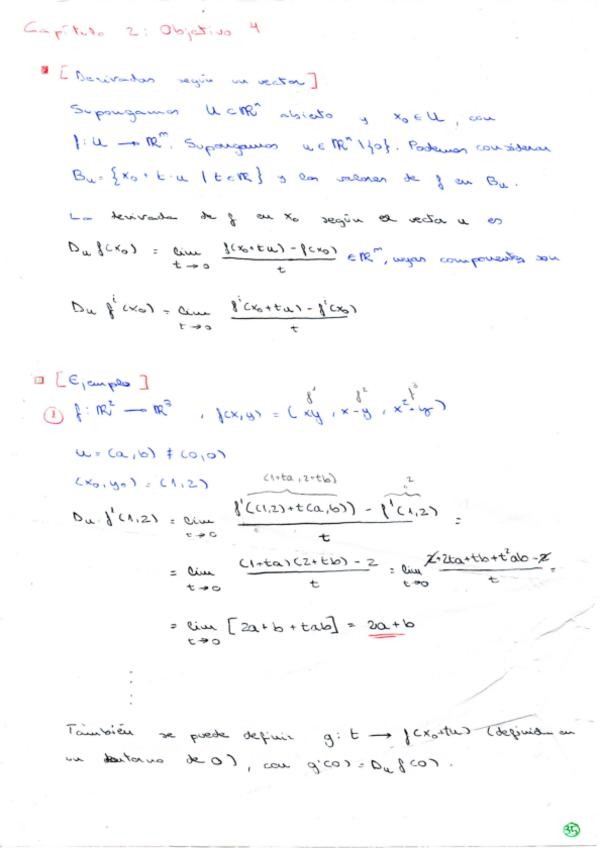 Capítulo 2: Objetivo 4
[Derivadas según un vector]
Supongamos U ⊂ ℝⁿ abierto y x₀ ∈ U, con
f: U → ℝᵐ. Supongamos u ∈ ℝⁿ \ {0}. Podemos considerar
Bᵤ = {x₀ + t·u / t ∈ ℝ} y los valores de f en Bᵤ.
La derivada de f en x₀ según el vector u es
Dᵤ f(x₀) = lim_{t→0} (f(x₀+tu) - f(x₀))/t ∈ ℝᵐ, cuyas componentes son
Dᵤ fⁱ(x₀) = lim_{t→0} (fⁱ(x₀+tu) - fⁱ(x₀))/t
[Ejemplo]
f¹ f² f³
① f: ℝ² → ℝ³, f(x,y) = (xy, x-y, x²+y)
u = (a,b) ≠ (0,0)
(x₀,y₀) = (1,2)
(1+ta, 2+tb) 2
Dᵤ f¹(1,2) = lim_{t→0} (f¹((1,2)+t(a,b)) - f¹(1,2))/t =
= lim_{t→0} ((1+ta)(2+tb) - 2)/t = lim_{t→0} (2+2ta+tb+t²ab-2)/t =
= lim_{t→0} [2a+b+tab] = 2a+b
También se puede definir g: t → f(x₀+tu) (definida en
un entorno de 0), con g'(0) = Dᵤ f(0).
35